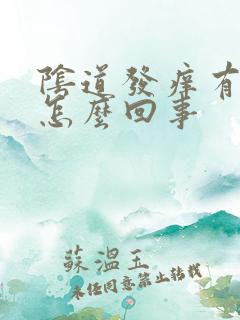 陰道發癢有
怎麼回事
蘇溫玉
未經同意禁止轉載